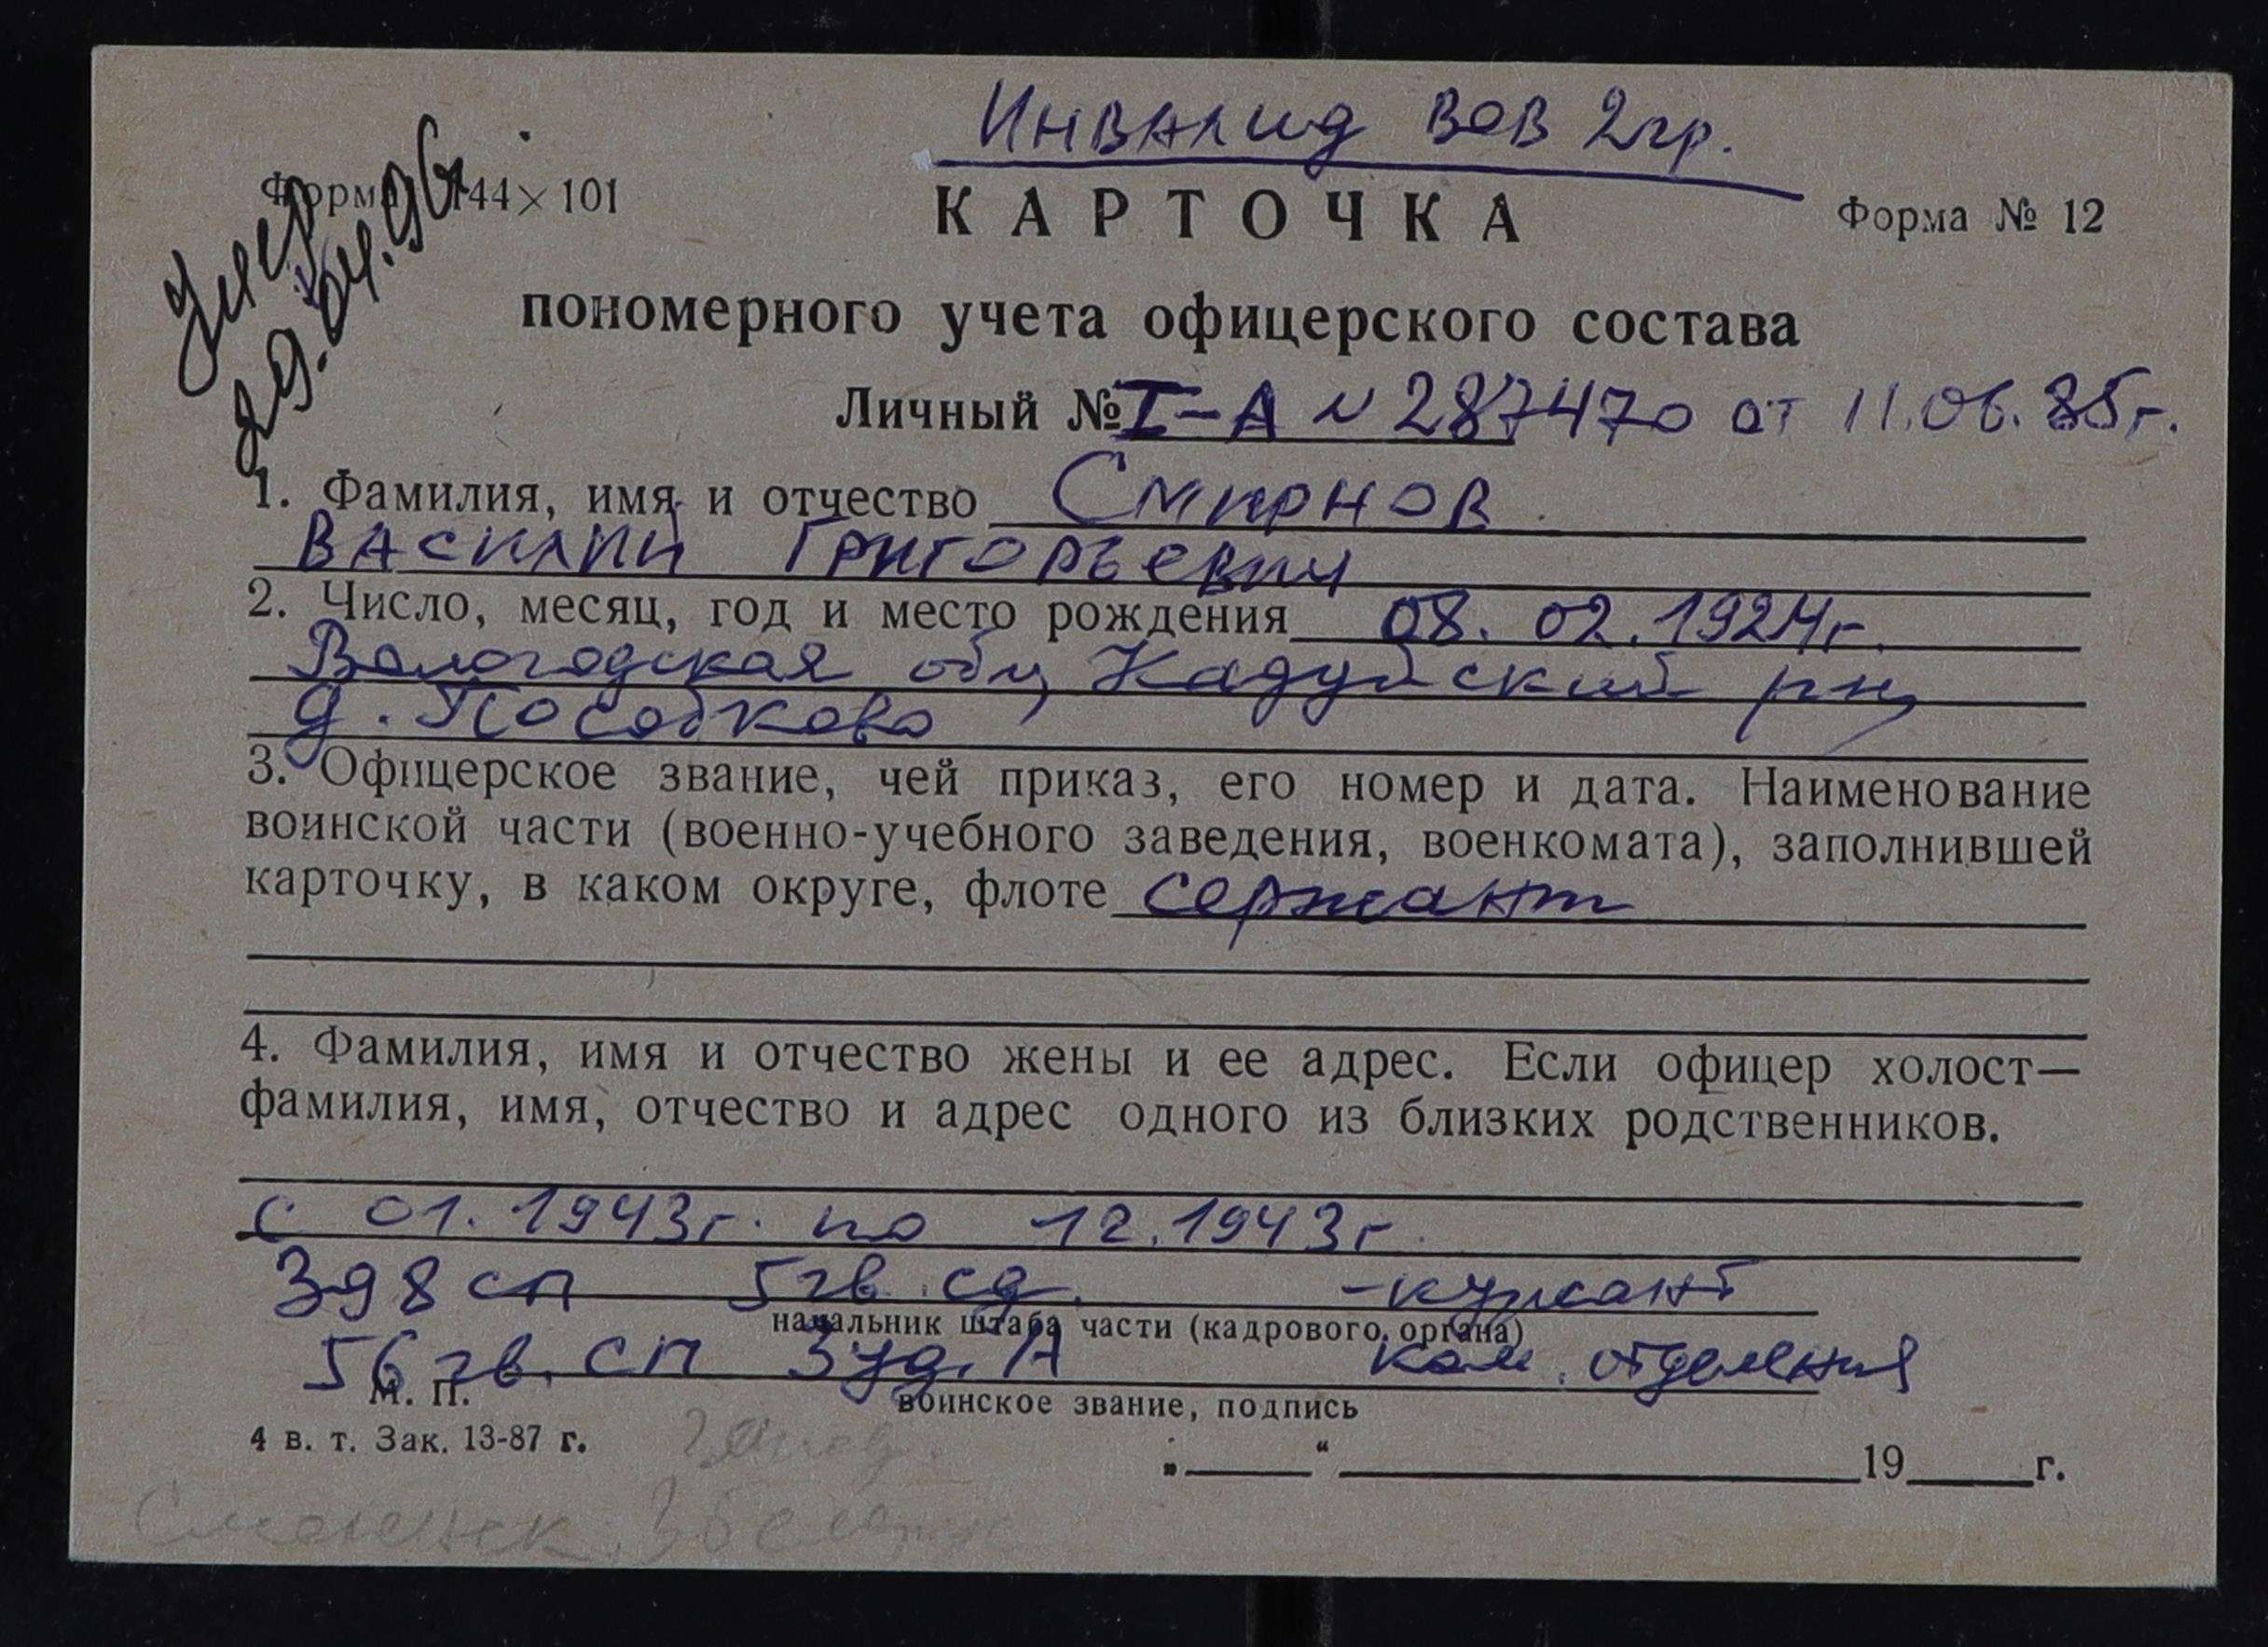 Инвалид ВОВ 2гр.
Умер
29.04.96г.
Форма 144×101
КАРТОЧКА
Форма № 12
пономерного учета офицерского состава
Личный № I-А № 287470 от 11.06.85г.
1. Фамилия, имя и отчество Смирнов
Василий Григорьевич
2. Число, месяц, год и место рождения 08.02.1924г.
Вологодская обл, Кадуйский рн,
д.
3. Офицерское звание, чей приказ, его номер и дата. Наименование
воинской части (военно-учебного заведения, военкомата), заполнившей
карточку, в каком округе, флоте сержант
4. Фамилия, имя и отчество жены и ее адрес. Если офицер холост—
фамилия, имя, отчество и адрес одного из близких родственников.
с 01.1943г. по 12.1943г.
398 сп 5 гв. сд. -курсант
начальник штаба части (кадрового органа)
56 гв. сп 3 уд. А ком. отделения
М. П.
воинское звание, подпись
4 в. т. Зак. 13-87 г.
„ “ 19 г.
Смоленск.